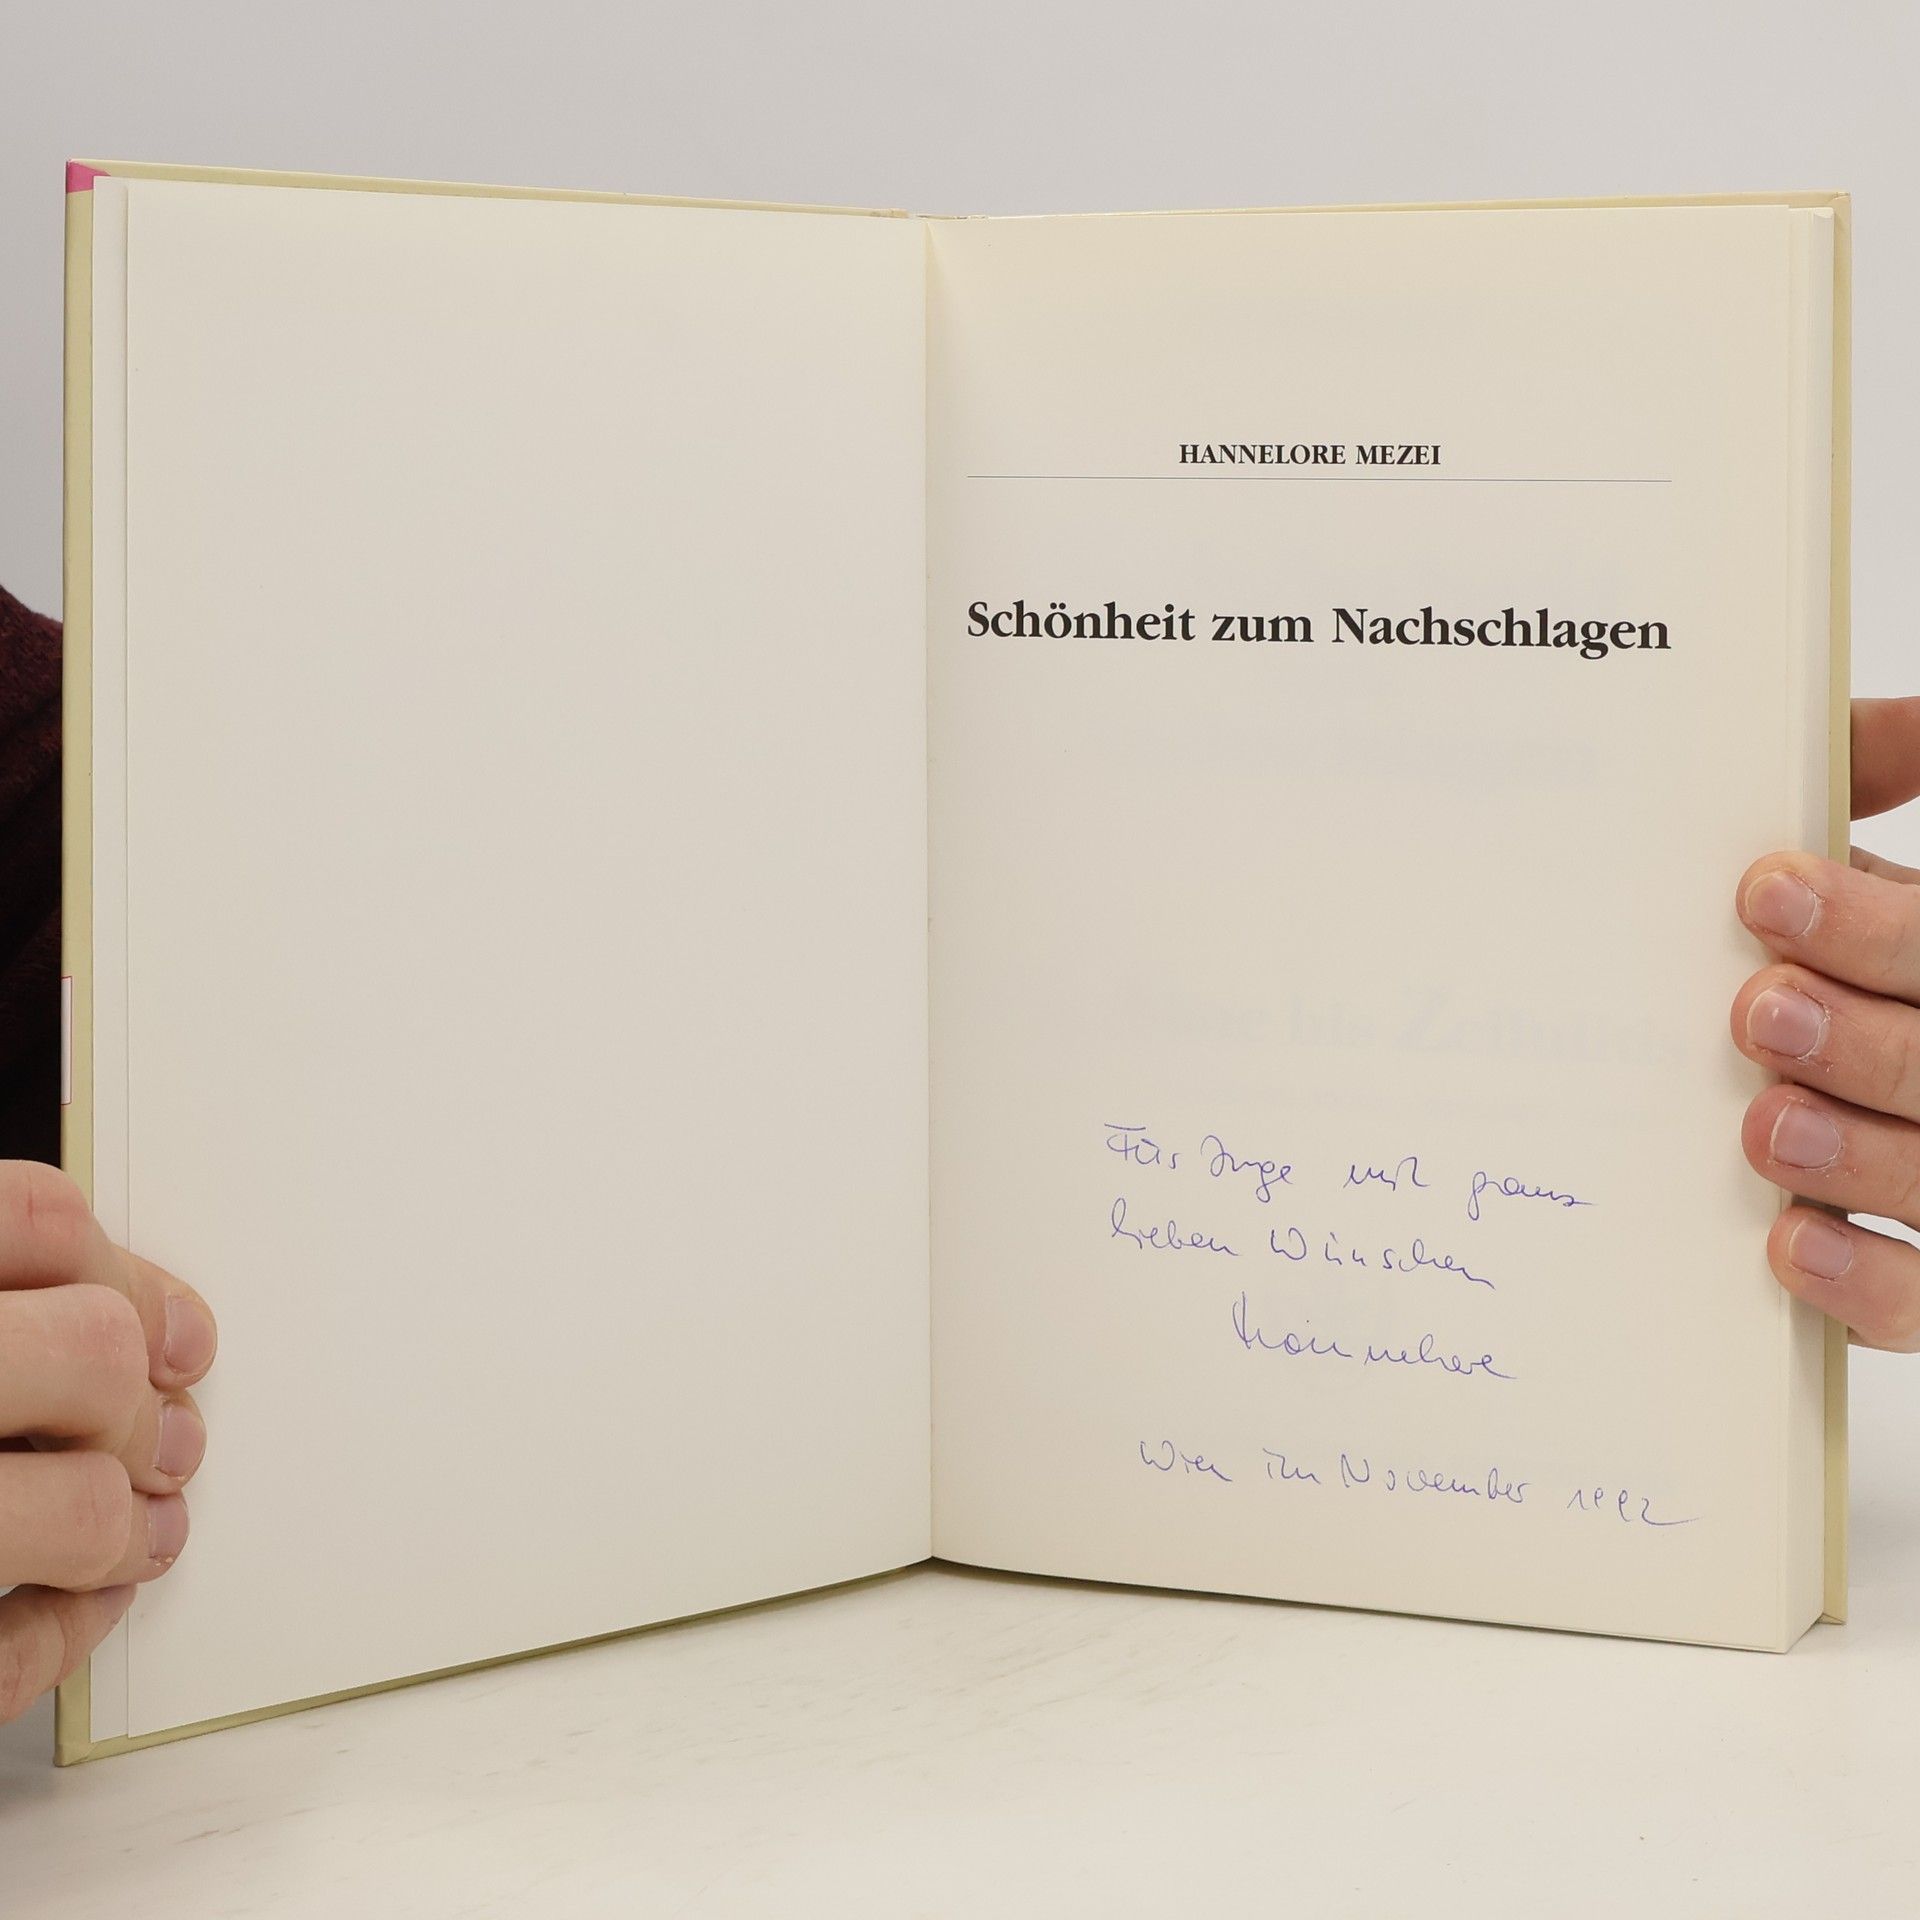 HANNELORE MEZEI
Schönheit zum Nachschlagen
Für Inge mit ganz
lieben Wünschen
Hannelore
Wien im November 1992